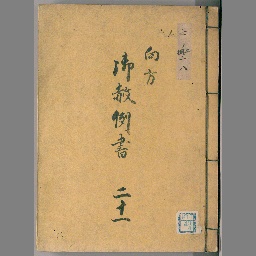 向方
御赦例書
二十一